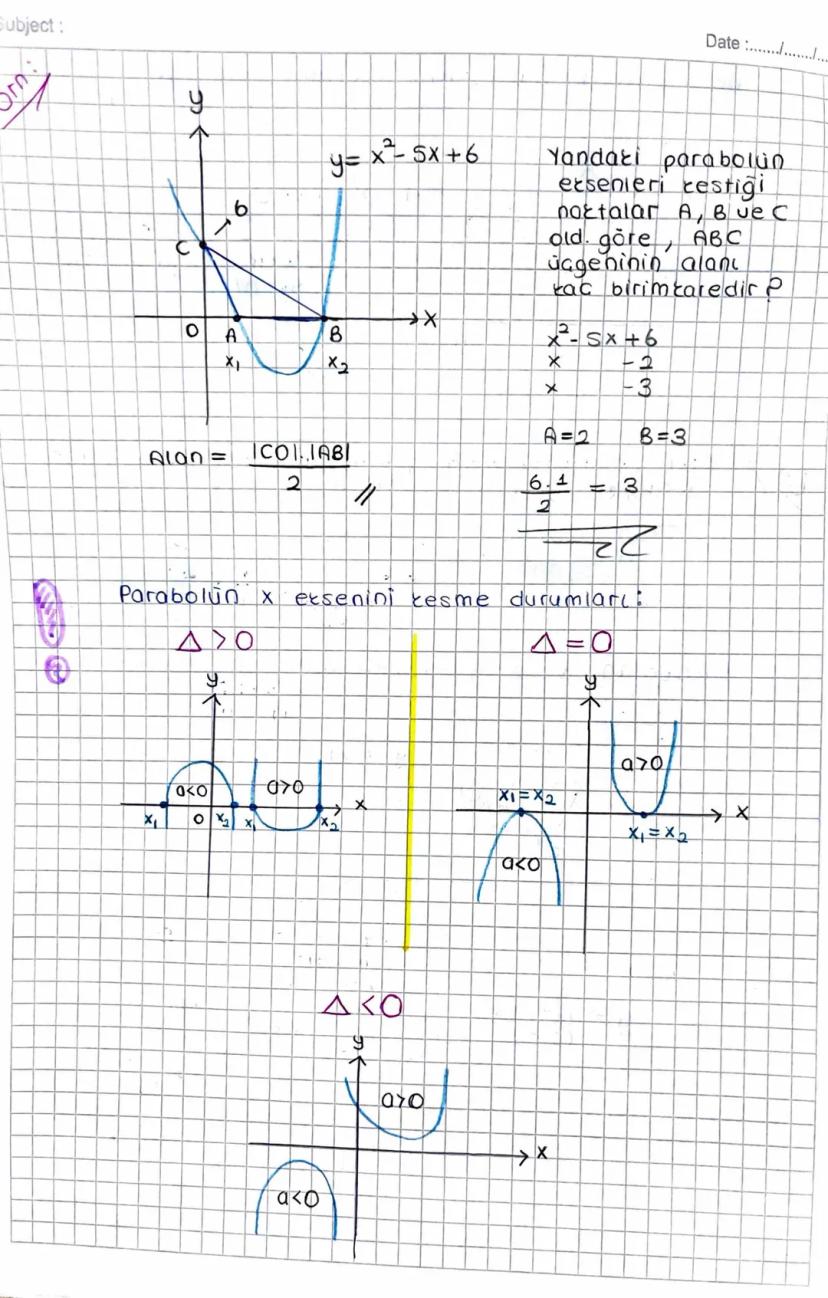 Subject :
Date :......./......./...
Örn:
y
y = x² - 5x + 6
6
C
O
A
B
x
x₁
x₂
Yandaki parabolün
eksenleri kestiği
noktalar A, B ve C
old. göre, ABC
üçgeninin alanı
kaç birimkaredir?
x² - 5x + 6
x -2
x -3
A=2 B=3
Alan = |CO|.|AB|
2 //
6.1 = 3
2
Parabolün x eksenini kesme durumları:
Δ > 0
y
a<0
a>0
x
x₁ O x₂ x₁ x₂
Δ = 0
y
a>0
x₁ = x₂
x
x₁ = x₂
a<0
Δ < 0
y
a>0
x
a<0